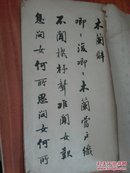 木蘭辭
唧〻復唧〻木蘭當戶織
不聞機杼聲惟聞女歎
息問女何所思問女何所